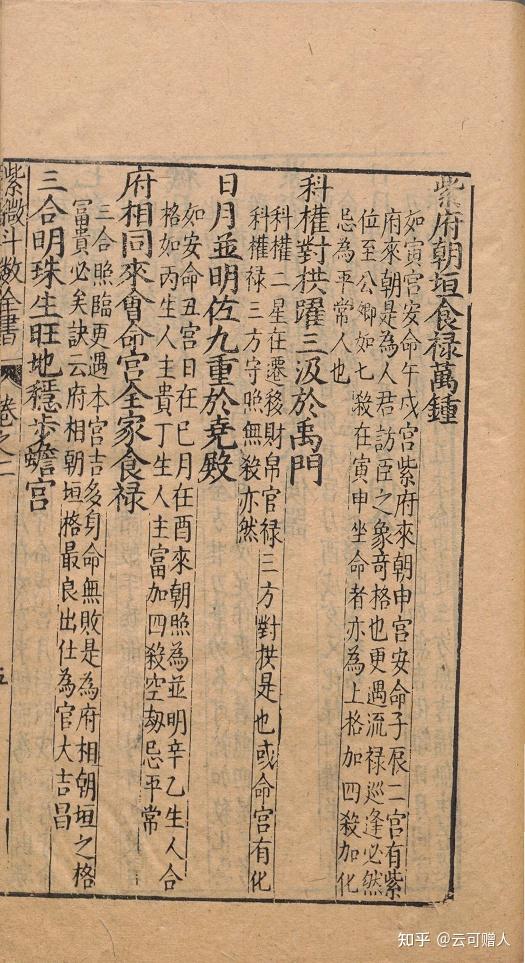 紫府朝垣食禄萬鍾
如寅宫安命午戌宫紫府來朝申宫安命子辰二宫有紫
府來朝是為人君訪臣之象奇格也更遇流禄巡逢必然
位至公卿如七殺在寅申坐命者亦為上格加四殺加化
忌為平常人也
科權對拱躍三汲於禹門
科權二星在遷移財帛官禄三方對拱是也或命宫有化
科權禄三方守照無殺亦然
日月並明佐九重於堯殿
如安命丑宫日在巳月在酉來朝照為並明辛乙生人合
格如丙生人主貴丁生人主富加四殺空劫忌平常
府相同來會命宫全家食禄
三合照臨更遇本宫吉多身命無敗是為府相朝垣之格
富貴必矣訣云府相朝垣格最良出仕為官大吉昌
三合明珠生旺地穩步蟾宫
紫微斗数全書 卷之二 五
知乎 @云可赠人